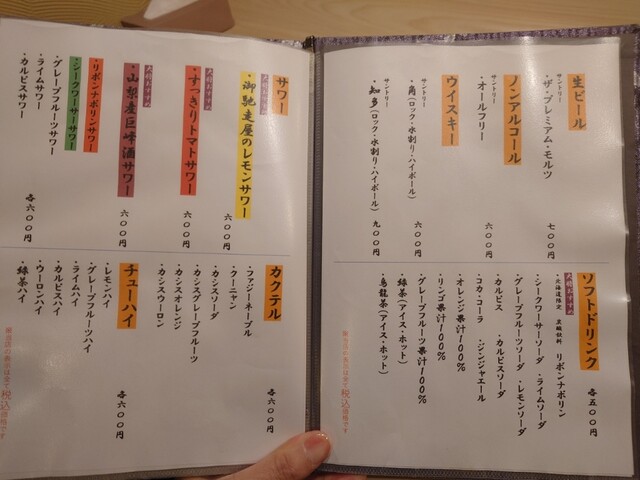 生ビール
サントリー
・ザ・プレミアム・モルツ
七〇〇円
ノンアルコール
サントリー
・オールフリー
六〇〇円
ウイスキー
サントリー
・角（ロック・水割り・ハイボール）
六〇〇円
サントリー
・知多（ロック・水割り・ハイボール）
九〇〇円
ソフトドリンク
各五〇〇円
大将おすすめ
・北海道限定 炭酸飲料 リボンナポリン
・シークワーサーソーダ ・ライムソーダ
・グレープフルーツソーダ ・レモンソーダ
・カルピス ・カルピスソーダ
・コカ・コーラ ・ジンジャエール
・オレンジ果汁100%
・リンゴ果汁100%
・グレープフルーツ果汁100%
・緑茶（アイス・ホット）
・烏龍茶（アイス・ホット）
※当店の表示は全て税込価格です
サワー
大将おすすめ
・御馳走屋のレモンサワー
六〇〇円
大将おすすめ
・すっきりトマトサワー
六〇〇円
大将おすすめ
・山梨産巨峰酒サワー
六〇〇円
・リボンナポリンサワー
・シークワーサーサワー
・グレープフルーツサワー
・ライムサワー
・カルピスサワー
各六〇〇円
カクテル
・ファジーネーブル
・クーニャン
・カシスソーダ
・カシスグレープフルーツ
・カシスオレンジ
・カシスウーロン
各六〇〇円
チューハイ
・レモンハイ
・グレープフルーツハイ
・ライムハイ
・カルピスハイ
・ウーロンハイ
・緑茶ハイ
各六〇〇円
※当店の表示は全て税込価格です